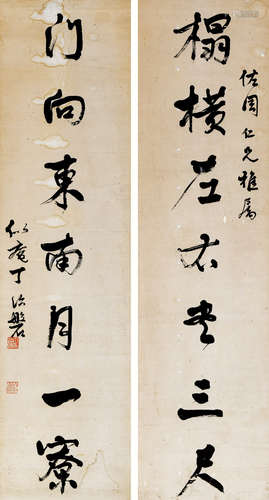 佐周仁兄雅属
榻横左右书三尺
门向東南月一寮
似庵丁治磐